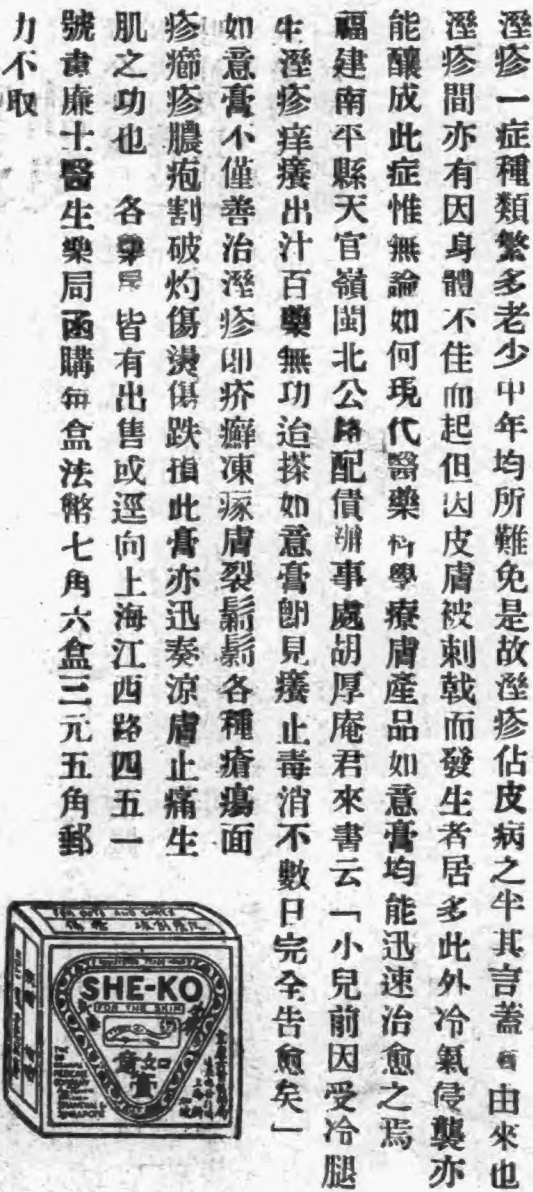 溼疹一症種類繁多老少中年均所難免是故溼疹佔皮病之半其言蓋有由來也
溼疹間亦有因身體不佳而起但因皮膚被刺戟而發生者居多此外冷氣侵襲亦
能釀成此症惟無論如何現代醫藥科學療膚產品如意膏均能迅速治愈之焉
福建南平縣天官嶺閩北公路配債辦事處胡厚庵君來書云「小兒前因受冷腿
生溼疹痒癢出汁百藥無功迨搽如意膏卽見癢止毒消不數日完全告愈矣」
如意膏不僅善治溼疹卽疥癬凍瘃膚裂鬎鬁各種瘡瘍面
疹癤疹膿疱割破灼傷燙傷跌損此膏亦迅奏涼膚止痛生
肌之功也 各藥房皆有出售或逕向上海江西路四五一
號韋廉士醫生藥局函購每盒法幣七角六盒三元五角郵
力不取
FOR CUTS AND SORES
SHE-KO
FOR THE SKIN
如意膏